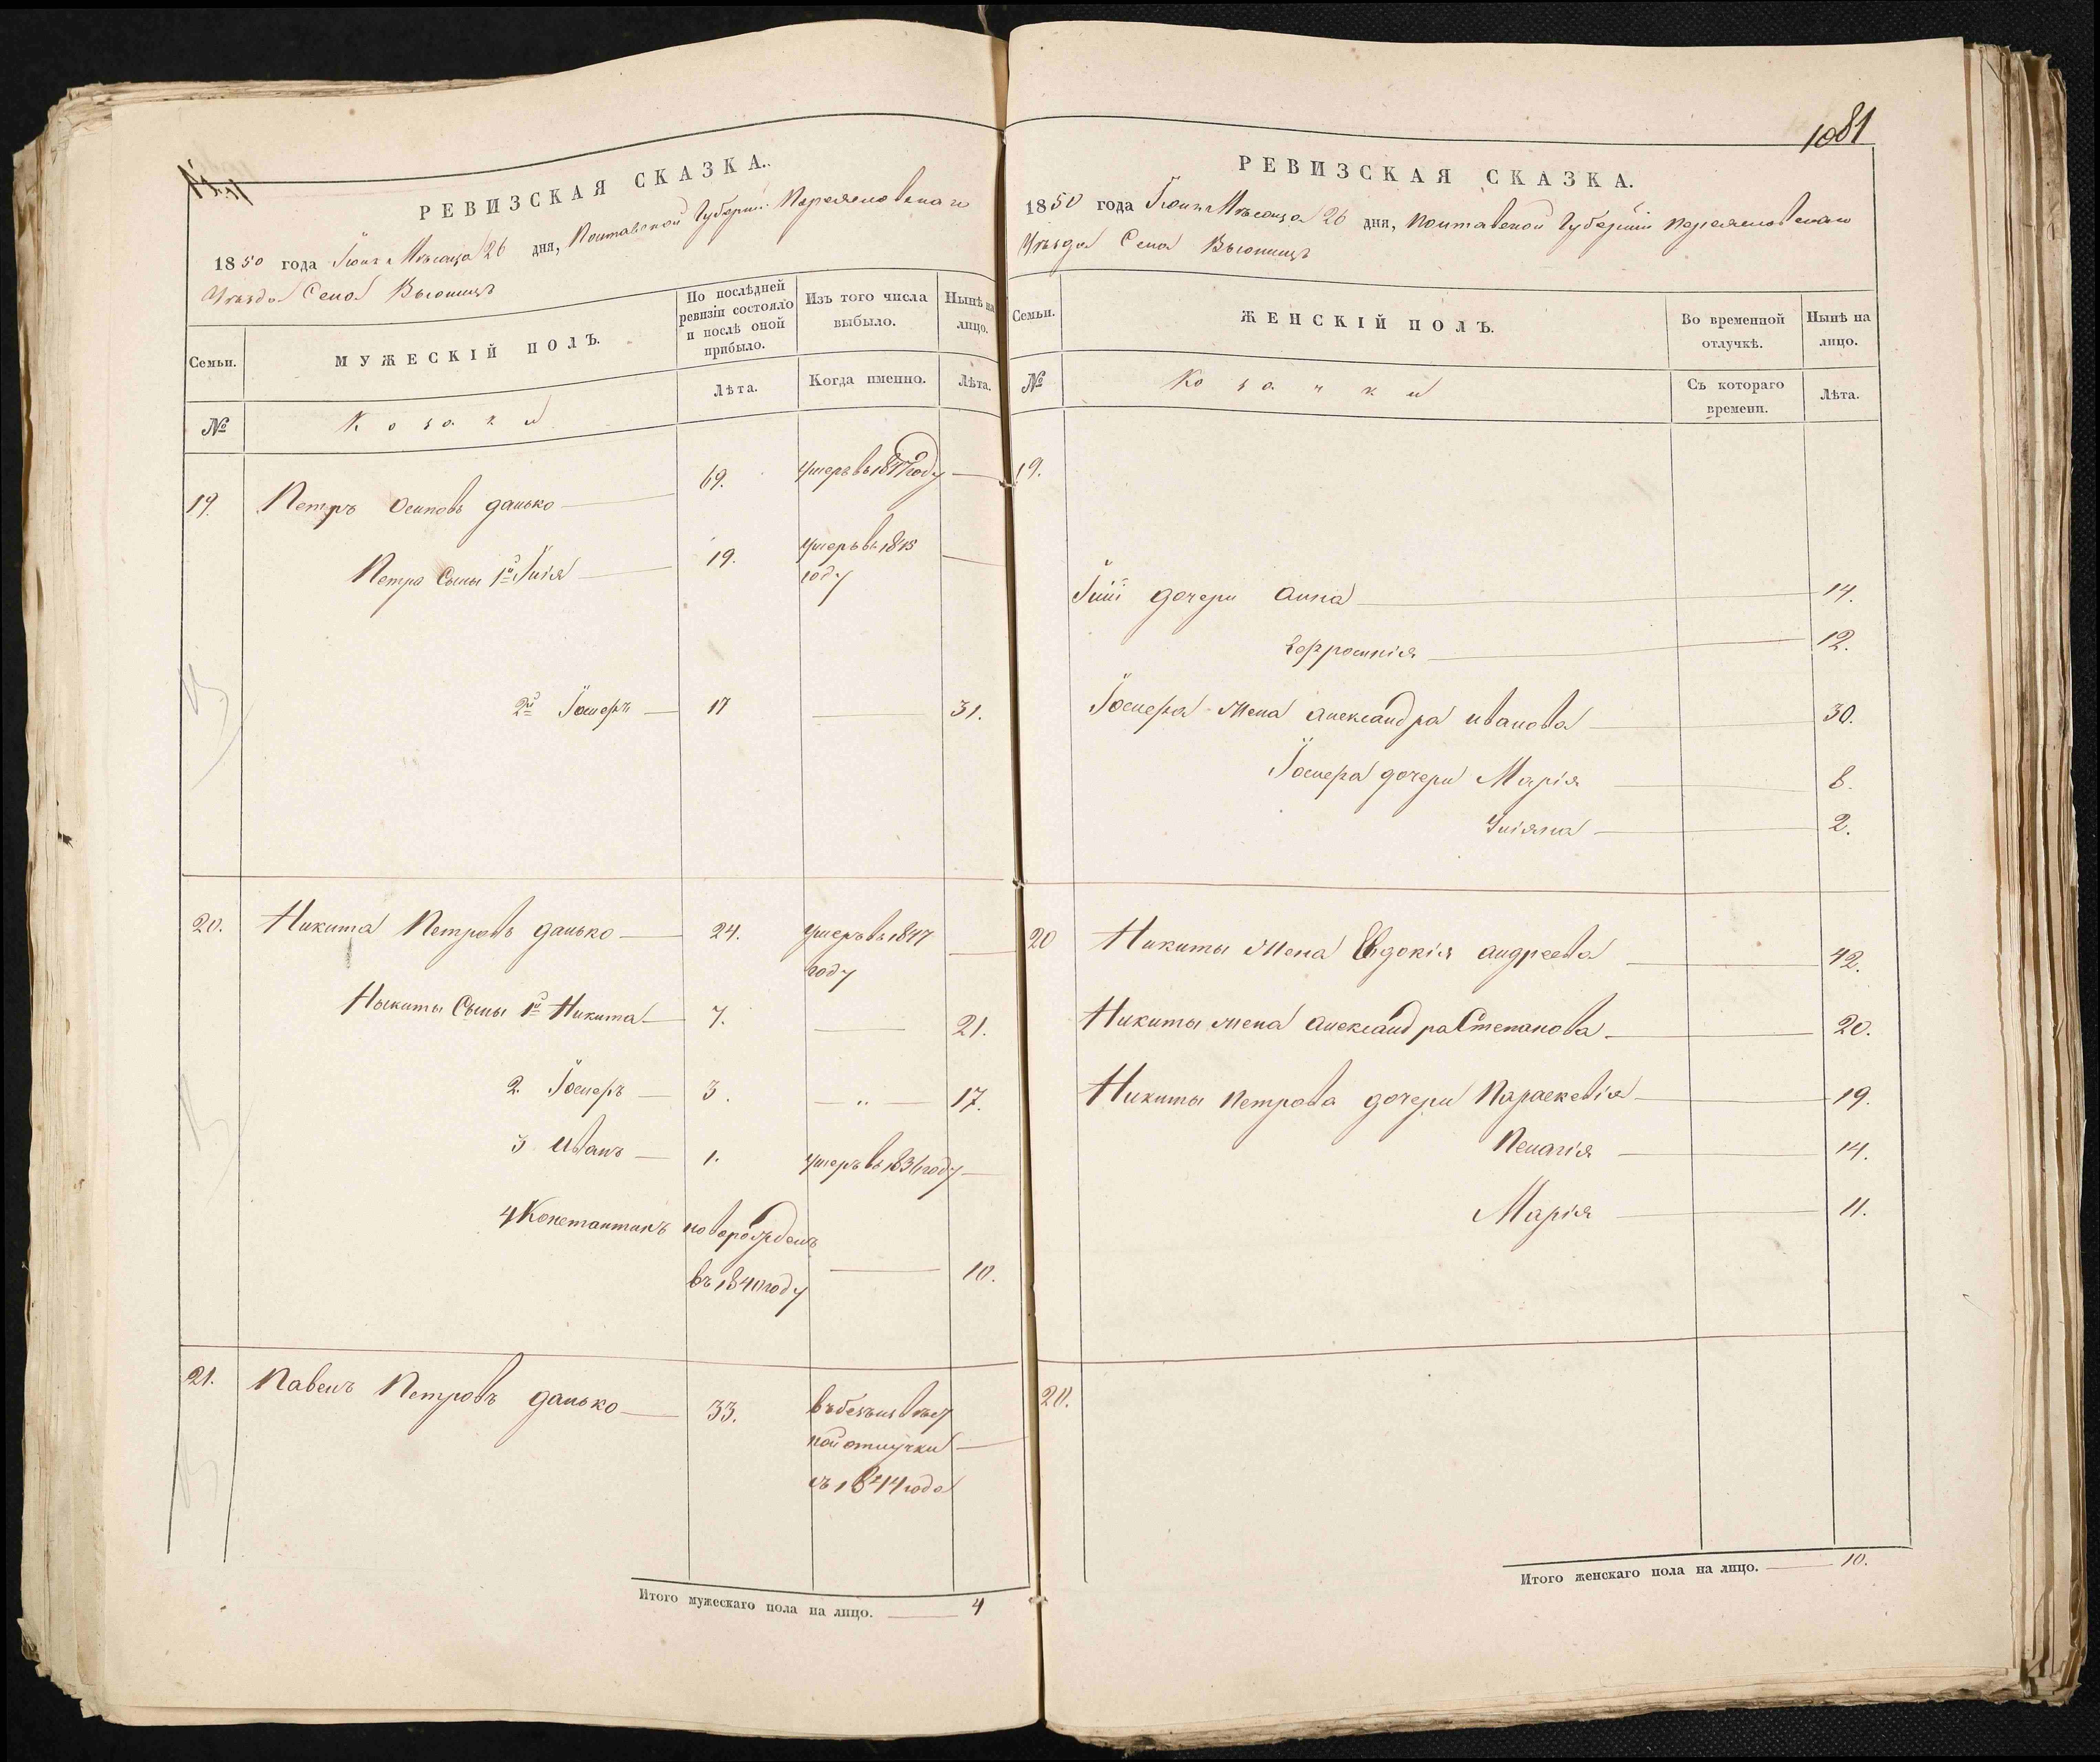 РЕВИЗСКАЯ СКАЗКА.
1850 года Іюня Мѣсяца 26 дня, Полтавской Губерніи Переяславскаго
Уѣзда Села Вьюнищъ
Семьи.
МУЖЕСКІЙ ПОЛЪ.
По послѣдней ревизіи состояло и послѣ оной прибыло.
Изъ того числа выбыло.
Нынѣ на лицо.
№
Козаки
Лѣта.
Когда именно.
Лѣта.
19. Петръ Осиповъ Данько 69. умеръ въ 1847 году
Петра Сыны 1й Илія 19. умеръ въ 1845
году
2й Іосифъ 17 31.
20. Никита Петровъ Данько 24. умеръ въ 1847
году
Никиты Сыны 1й Никита 7. 21.
2. Іосифъ 3. 17.
3 Иванъ 1. умеръ въ 1836 году
4 Константинъ новорожденъ
въ 1840 году 10.
21. Павелъ Петровъ Данько 33. въ безъизвѣст
ной отлучки
съ 1844 года
Итого мужескаго пола на лицо. 4
1081
РЕВИЗСКАЯ СКАЗКА.
1850 года Іюня Мѣсяца 26 дня, Полтавской Губерніи Переяславскаго
Уѣзда Села Вьюнищъ
Семьи.
ЖЕНСКІЙ ПОЛЪ.
Во временной отлучкѣ.
Нынѣ на лицо.
№
Козачки
Съ котораго времени.
Лѣта.
19.
Іліи дочери Анна 14.
Евфросинія 12.
Іосифа жена Александра Иванова 30.
Іосифа дочери Марія 8.
Уліяна 2.
20 Никиты жена Евдокія Андреева 42.
Никиты жена Александра Степанова 20.
Никиты Петрова дочери Параскевія 19.
Пелагія 14.
Марія 11.
21.
Итого женскаго пола на лицо. 10.